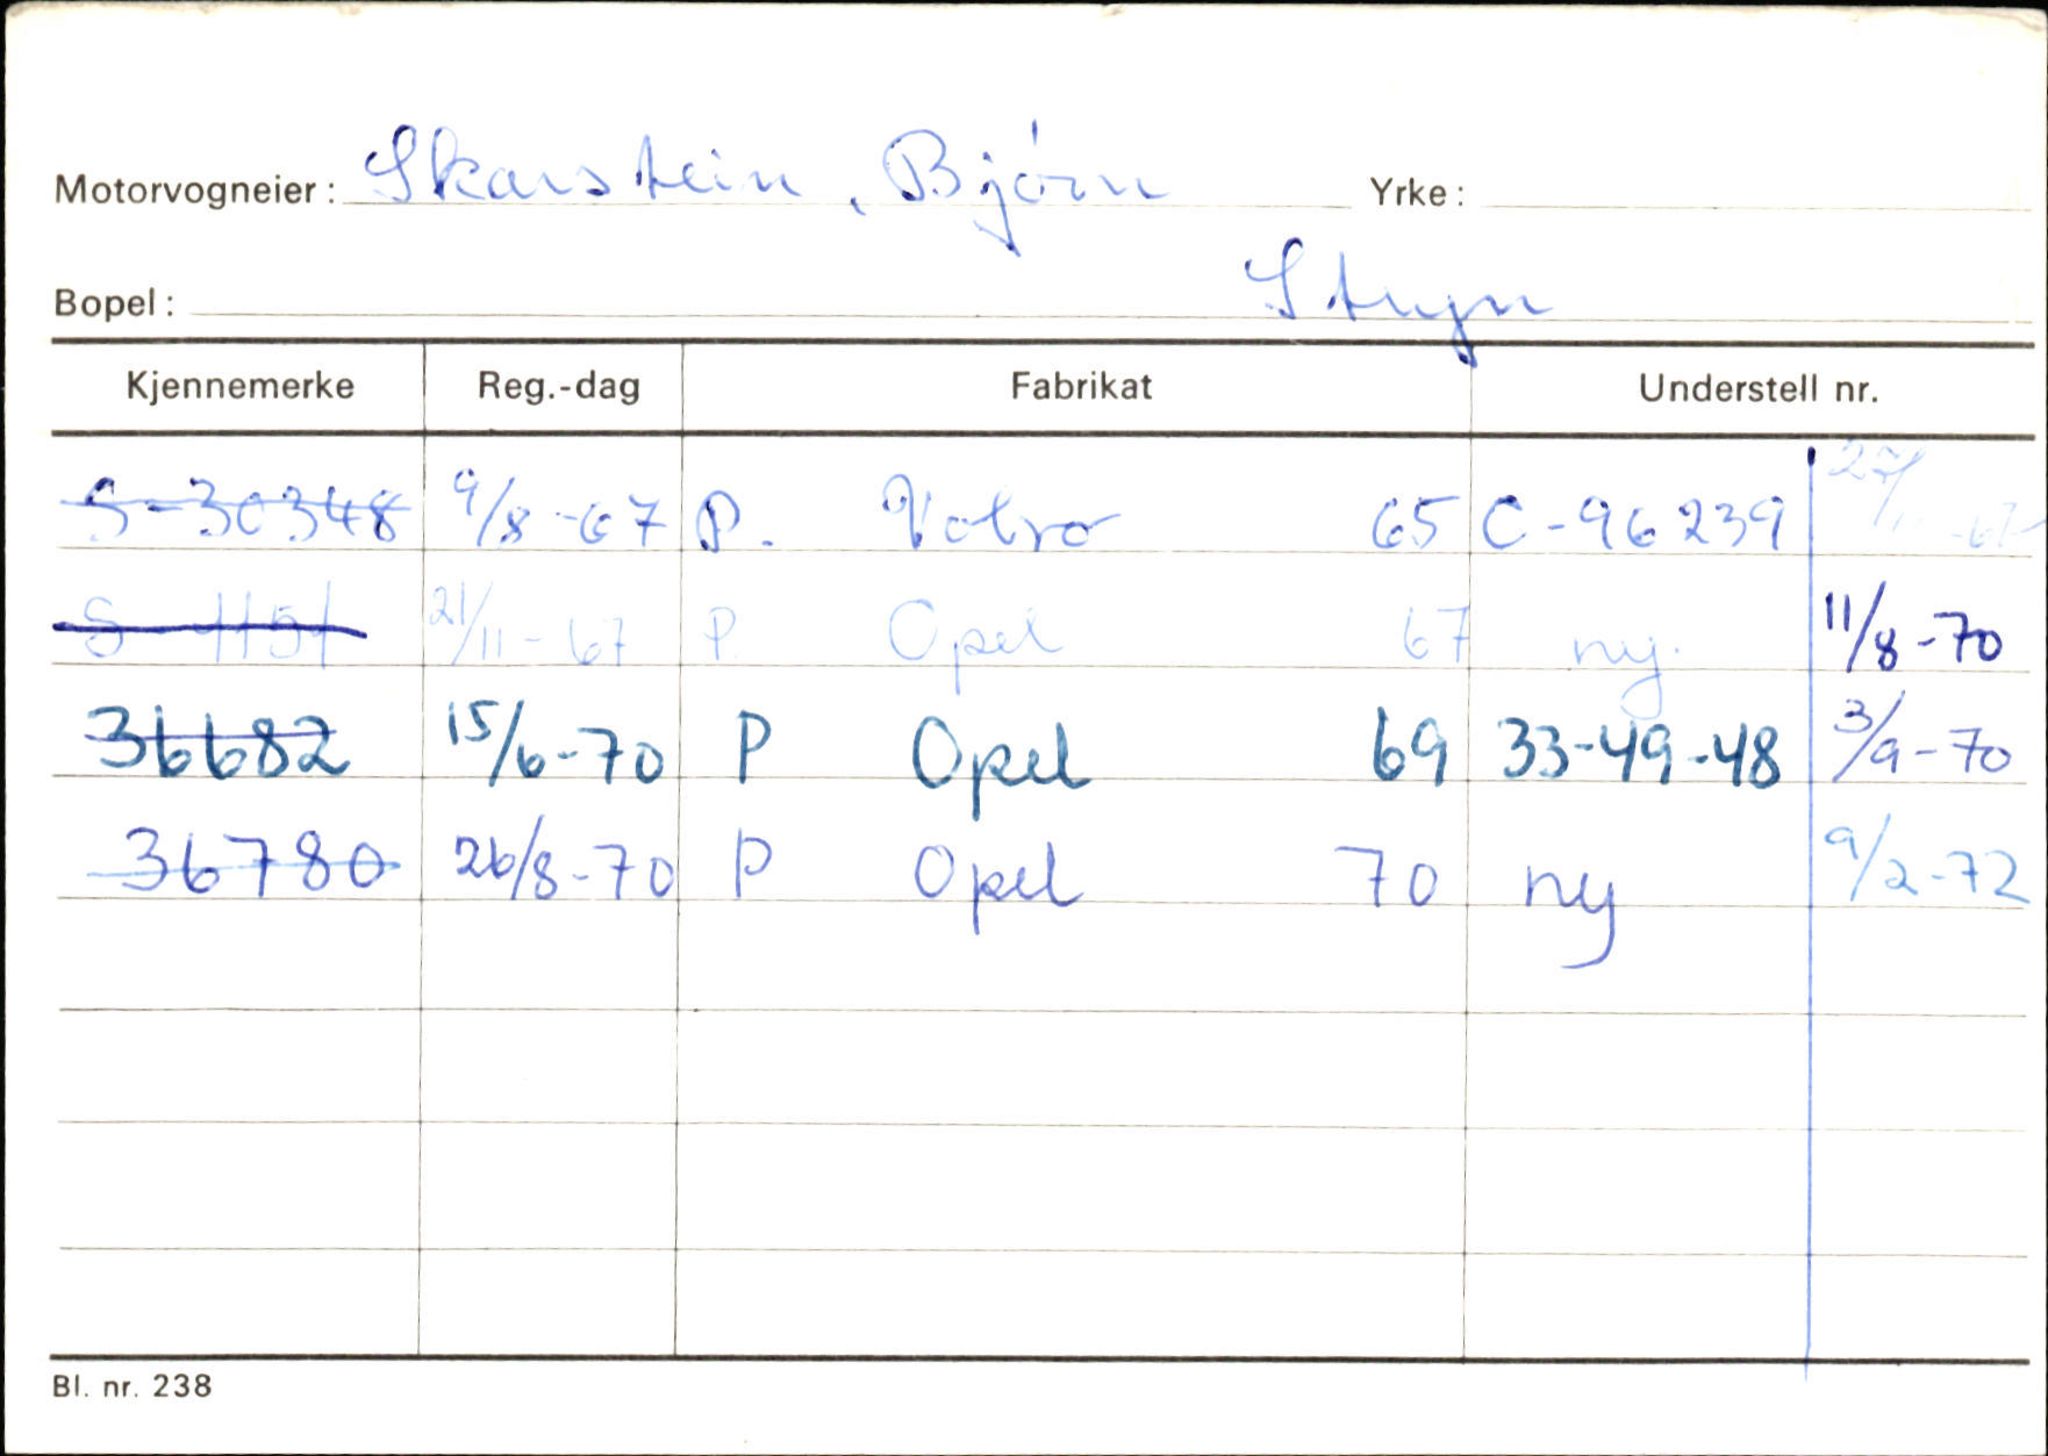 Motorvogneier: Skarstein, Bjørn Yrke:
Bopel: Stryn
Kjennemerke Reg.-dag Fabrikat Understell nr.
S-30348 9/8-67 P. Volvo 65 C-96239 27/11-67
S-1151 21/11-67 P. Opel 67 ny. 11/8-70
36682 15/6-70 P Opel 69 33-49-48 3/9-70
36780 26/8-70 P Opel 70 ny 9/2-72
Bl. nr. 238